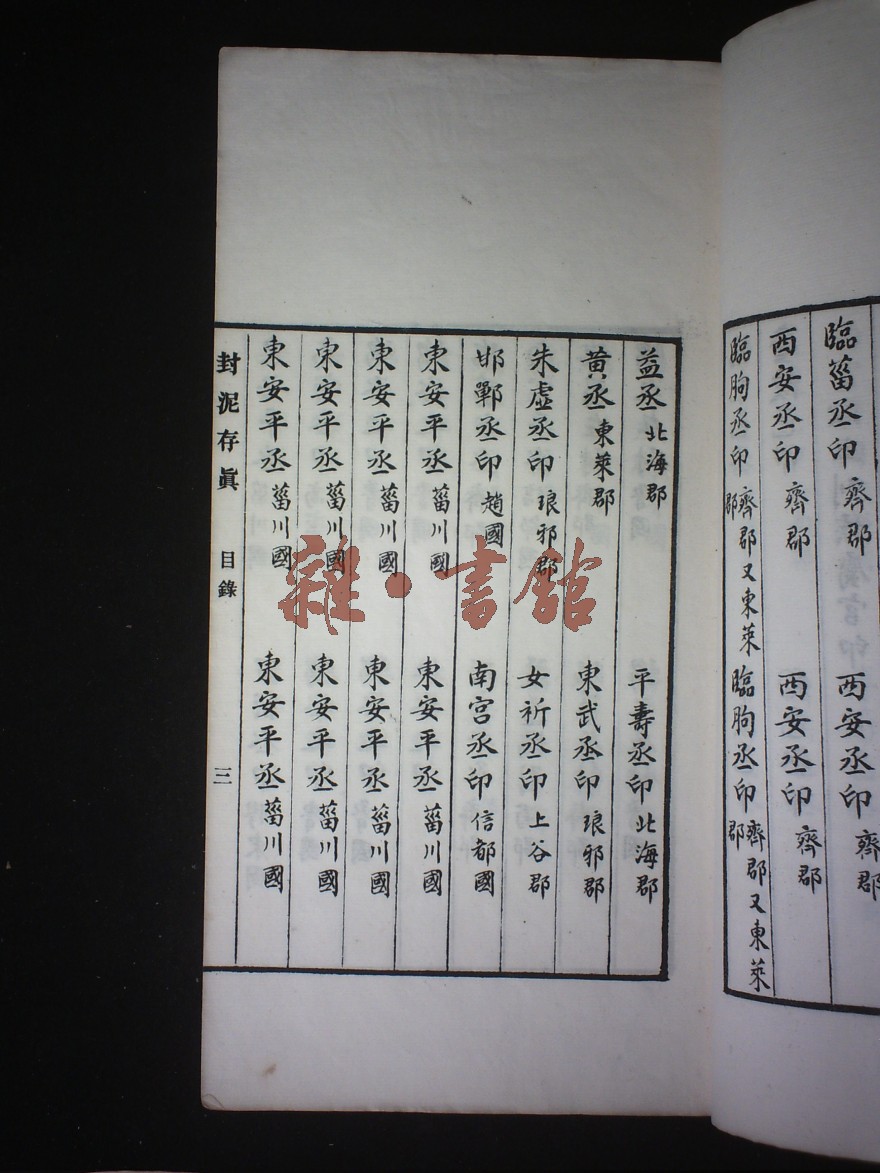 臨菑丞印 齊郡 西安丞印 齊郡
西安丞印 齊郡 西安丞印 齊郡
臨朐丞印 齊郡又東萊郡 臨朐丞印 齊郡又東萊郡
益丞 北海郡 平壽丞印 北海郡
黃丞 東萊郡 東武丞印 琅邪郡
朱虛丞印 琅邪郡 女祈丞印 上谷郡
邯鄲丞印 趙國 南宮丞印 信都國
東安平丞 菑川國 東安平丞 菑川國
東安平丞 菑川國 東安平丞 菑川國
東安平丞 菑川國 東安平丞 菑川國
東安平丞 菑川國 東安平丞 菑川國
封泥存眞 目錄 三
雜·書館